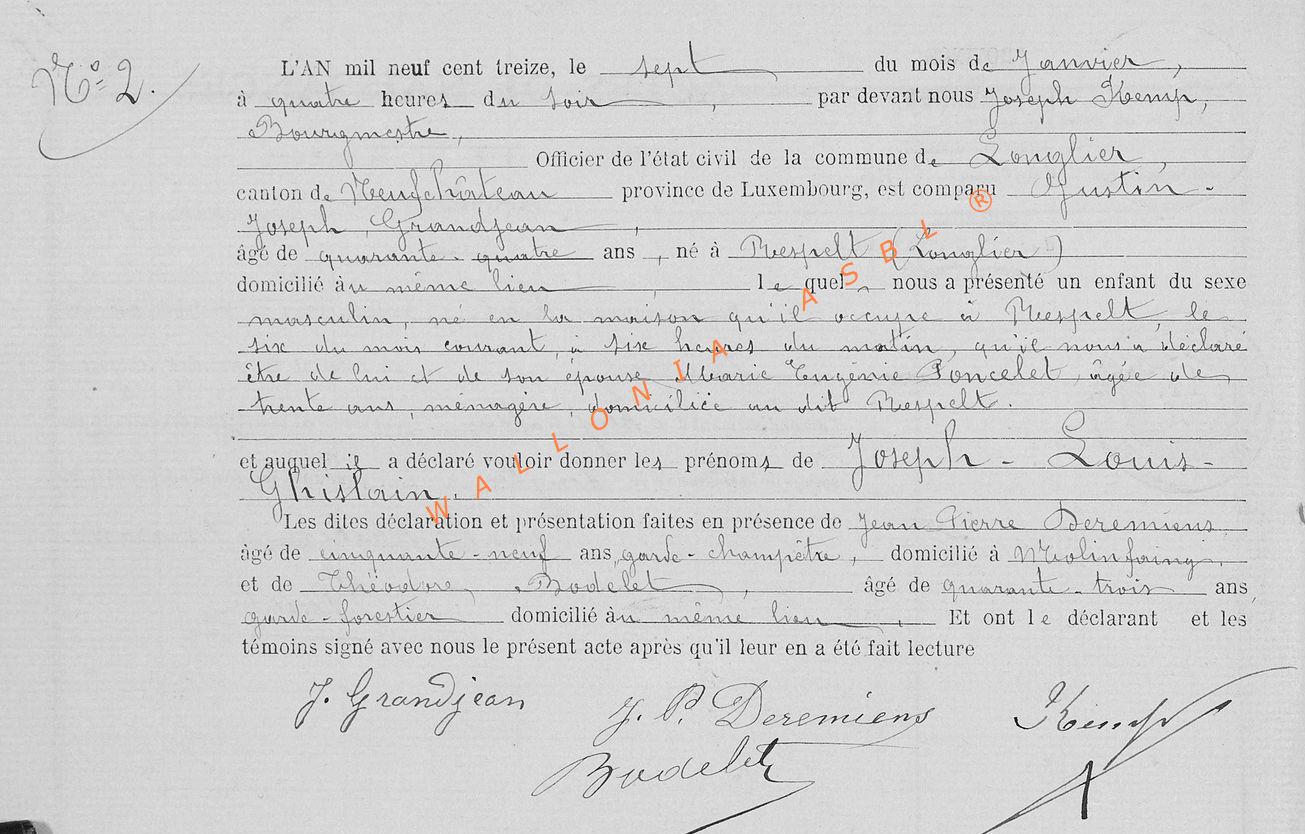 N° 2.
L'AN mil neuf cent treize, le sept du mois de Janvier,
à quatre heures du soir, par devant nous Joseph Kemp,
Bourgmestre,
Officier de l'état civil de la commune de Longlier,
canton de Neufchâteau province de Luxembourg, est comparu Justin-
Joseph Grandjean,
âgé de quarante-quatre ans, né à Respelt (Longlier)
domicilié au même lien, lequel, nous a présenté un enfant du sexe
masculin, né en la maison qu'il occupe à Respelt, le
six du mois courant, à six heures du matin, qu'il nous a déclaré
être de lui et de son épouse Marie Eugénie Poncelet, âgée de
trente ans, ménagère, domiciliée au dit Respelt.
et auquel il a déclaré vouloir donner les prénoms de Joseph-Louis-
Ghislain.
Les dites déclaration et présentation faites en présence de Jean Pierre Deremiens,
âgé de cinquante-neuf ans, garde-champêtre, domicilié à Molinfaing,
et de Théodore Bodelet, âgé de quarante-trois ans,
garde-forestier domicilié au même lieu, Et ont le déclarant et les
témoins signé avec nous le présent acte après qu'il leur en a été fait lecture
J. Grandjean J. P. Deremiens Kemp
Bodelet
WALLONIA ASBL ®